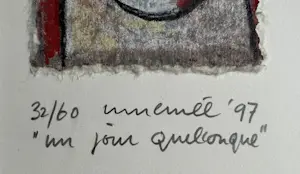 32/60 '97
"un jour quelconque"